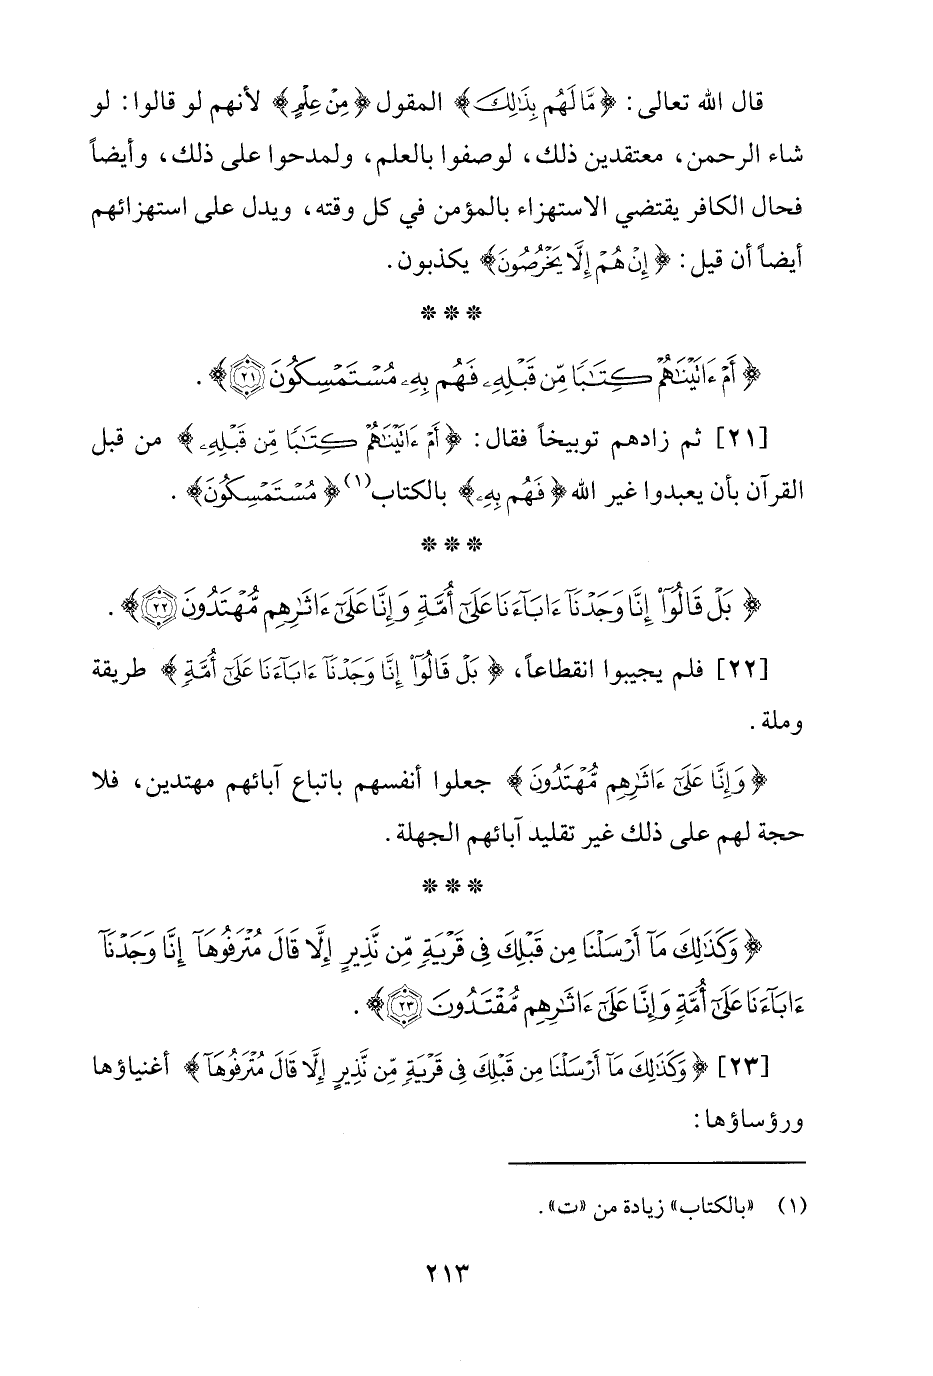 قال الله تعالى: ﴿مَّا لَهُم بِذَٰلِكَ﴾ المقول ﴿مِنْ عِلْمٍ﴾ لأنهم لو قالوا: لو
شاء الرحمن، معتقدين ذلك، لوصفوا بالعلم، ولمدحوا على ذلك، وأيضاً
فحال الكافر يقتضي الاستهزاء بالمؤمن في كل وقته، ويدل على استهزائهم
أيضاً أن قيل: ﴿إِنْ هُمْ إِلَّا يَخْرُصُونَ﴾ يكذبون.
* * *
﴿أَمْ ءَاتَيْنَٰهُمْ كِتَٰبًا مِّن قَبْلِهِۦ فَهُم بِهِۦ مُسْتَمْسِكُونَ ٢١﴾.
[٢١] ثم زادهم توبيخاً فقال: ﴿أَمْ ءَاتَيْنَٰهُمْ كِتَٰبًا مِّن قَبْلِهِۦ﴾ من قبل
القرآن بأن يعبدوا غير الله ﴿فَهُم بِهِۦ﴾ بالكتاب(١) ﴿مُسْتَمْسِكُونَ﴾.
* * *
﴿بَلْ قَالُوٓا۟ إِنَّا وَجَدْنَآ ءَابَآءَنَا عَلَىٰٓ أُمَّةٍ وَإِنَّا عَلَىٰٓ ءَاثَٰرِهِم مُّهْتَدُونَ ٢٢﴾.
[٢٢] فلم يجيبوا انقطاعاً، ﴿بَلْ قَالُوٓا۟ إِنَّا وَجَدْنَآ ءَابَآءَنَا عَلَىٰٓ أُمَّةٍ﴾ طريقة
وملة.
﴿وَإِنَّا عَلَىٰٓ ءَاثَٰرِهِم مُّهْتَدُونَ﴾ جعلوا أنفسهم باتباع آبائهم مهتدين، فلا
حجة لهم على ذلك غير تقليد آبائهم الجهلة.
* * *
﴿وَكَذَٰلِكَ مَآ أَرْسَلْنَا مِن قَبْلِكَ فِى قَرْيَةٍ مِّن نَّذِيرٍ إِلَّا قَالَ مُتْرَفُوهَآ إِنَّا وَجَدْنَآ
ءَابَآءَنَا عَلَىٰٓ أُمَّةٍ وَإِنَّا عَلَىٰٓ ءَاثَٰرِهِم مُّقْتَدُونَ ٢٣﴾.
[٢٣] ﴿وَكَذَٰلِكَ مَآ أَرْسَلْنَا مِن قَبْلِكَ فِى قَرْيَةٍ مِّن نَّذِيرٍ إِلَّا قَالَ مُتْرَفُوهَآ﴾ أغنياؤها
ورؤساؤها:
(١) «بالكتاب» زيادة من «ت».
٢١٣